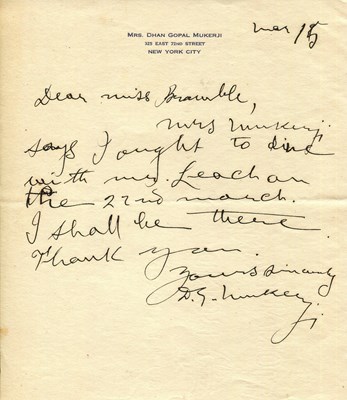 MRS. DHAN GOPAL MUKERJI
325 EAST 72ND STREET
NEW YORK CITY
Mar 15
Dear Miss Bramble,
Mrs Mukerji
says I ought to dine
with Mr. Leach on
the 22nd March.
I shall be there.
Thank you.
Yours sincerely
D.G. Mukerji